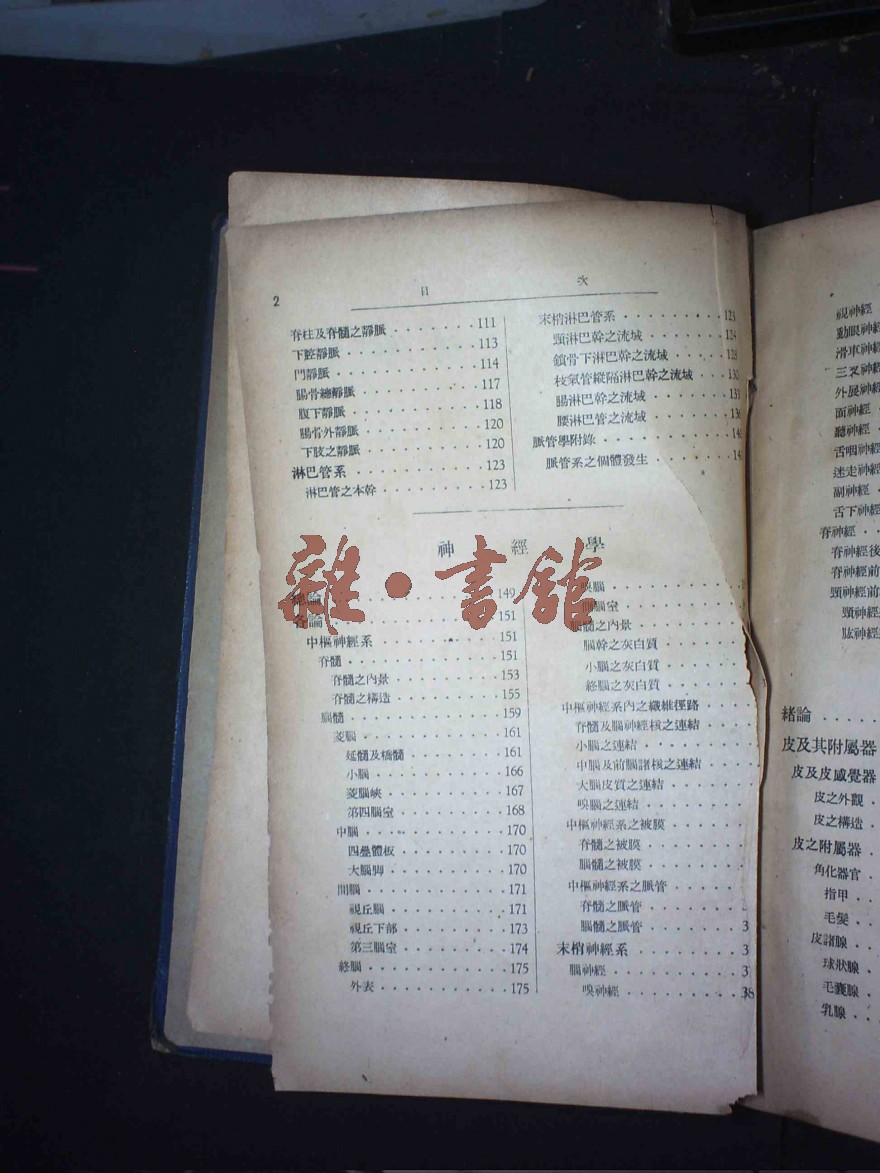 2
目 次
脊柱及脊髓之靜脈 · · · · · · · · 111
下腔靜脈 · · · · · · · · · · · 113
門靜脈 · · · · · · · · · · · · 114
腸骨總靜脈 · · · · · · · · · · 117
腹下靜脈 · · · · · · · · · · · 118
腸骨外靜脈 · · · · · · · · · · 120
下肢之靜脈 · · · · · · · · · · 120
淋巴管系 · · · · · · · · · · · 123
淋巴管之本幹 · · · · · · · · · 123
末梢淋巴管系 · · · · · · · · · 123
頸淋巴幹之流域 · · · · · · · · 124
鎖骨下淋巴幹之流域 · · · · · · 128
枝氣管縱隔淋巴幹之流域 · · · · 130
腸淋巴幹之流域 · · · · · · · · 131
腰淋巴管之流域 · · · · · · · · 136
脈管學附錄 · · · · · · · · · · 14
脈管系之個體發生 · · · · · · · 14
神 經 學
總論 · · · · · · · · · · · · 149
各論 · · · · · · · · · · · · 151
中樞神經系 · · · · · · · · · · 151
脊髓 · · · · · · · · · · · · 151
脊髓之內景 · · · · · · · · · · 153
脊髓之構造 · · · · · · · · · · 155
腦髓 · · · · · · · · · · · · 159
菱腦 · · · · · · · · · · · · 161
延髓及橋髓 · · · · · · · · · · 161
小腦 · · · · · · · · · · · · 166
菱腦峽 · · · · · · · · · · · 167
第四腦室 · · · · · · · · · · · 168
中腦 · · · · · · · · · · · · 170
四疊體板 · · · · · · · · · · · 170
大腦脚 · · · · · · · · · · · 170
間腦 · · · · · · · · · · · · 171
視丘腦 · · · · · · · · · · · 171
視丘下部 · · · · · · · · · · · 173
第三腦室 · · · · · · · · · · · 174
終腦 · · · · · · · · · · · · 175
外表 · · · · · · · · · · · · 175
嗅腦 · · · · · · · ·
腦室 · · · · · · · ·
腦髓之內景 · · · · · ·
腦幹之灰白質 · · · · ·
小腦之灰白質 · · · · ·
終腦之灰白質 · · · · ·
中樞神經系內之纖維徑路 · · ·
脊髓及腦神經核之連結 · · · ·
小腦之連結 · · · · · ·
中腦及前腦諸核之連結 · · · ·
大腦皮質之連結 · · · · ·
嗅腦之連結 · · · · · ·
中樞神經系之被膜 · · · · ·
脊髓之被膜 · · · · · ·
腦髓之被膜 · · · · · ·
中樞神經系之脈管 · · · · ·
脊髓之脈管 · · · · · ·
腦髓之脈管 · · · · · · · 3
末梢神經系 · · · · · · · 3
腦神經 · · · · · · · · · 3
嗅神經 · · · · · · · · · 38
雜·書舘
視神經
動眼神經
滑車神經
三叉神經
外展神經
面神經 ·
聽神經 ·
舌咽神經
迷走神經
副神經 ·
舌下神經
脊神經 · ·
脊神經後
脊神經前
頸神經前
頸神經
肱神經
緒論 · · · ·
皮及其附屬器
皮及皮感覺器
皮之外觀 ·
皮之構造 ·
皮之附屬器 ·
角化器官 ·
指甲 · ·
毛髮 · ·
皮諸腺 · ·
球狀腺 ·
毛囊腺 ·
乳腺 · ·